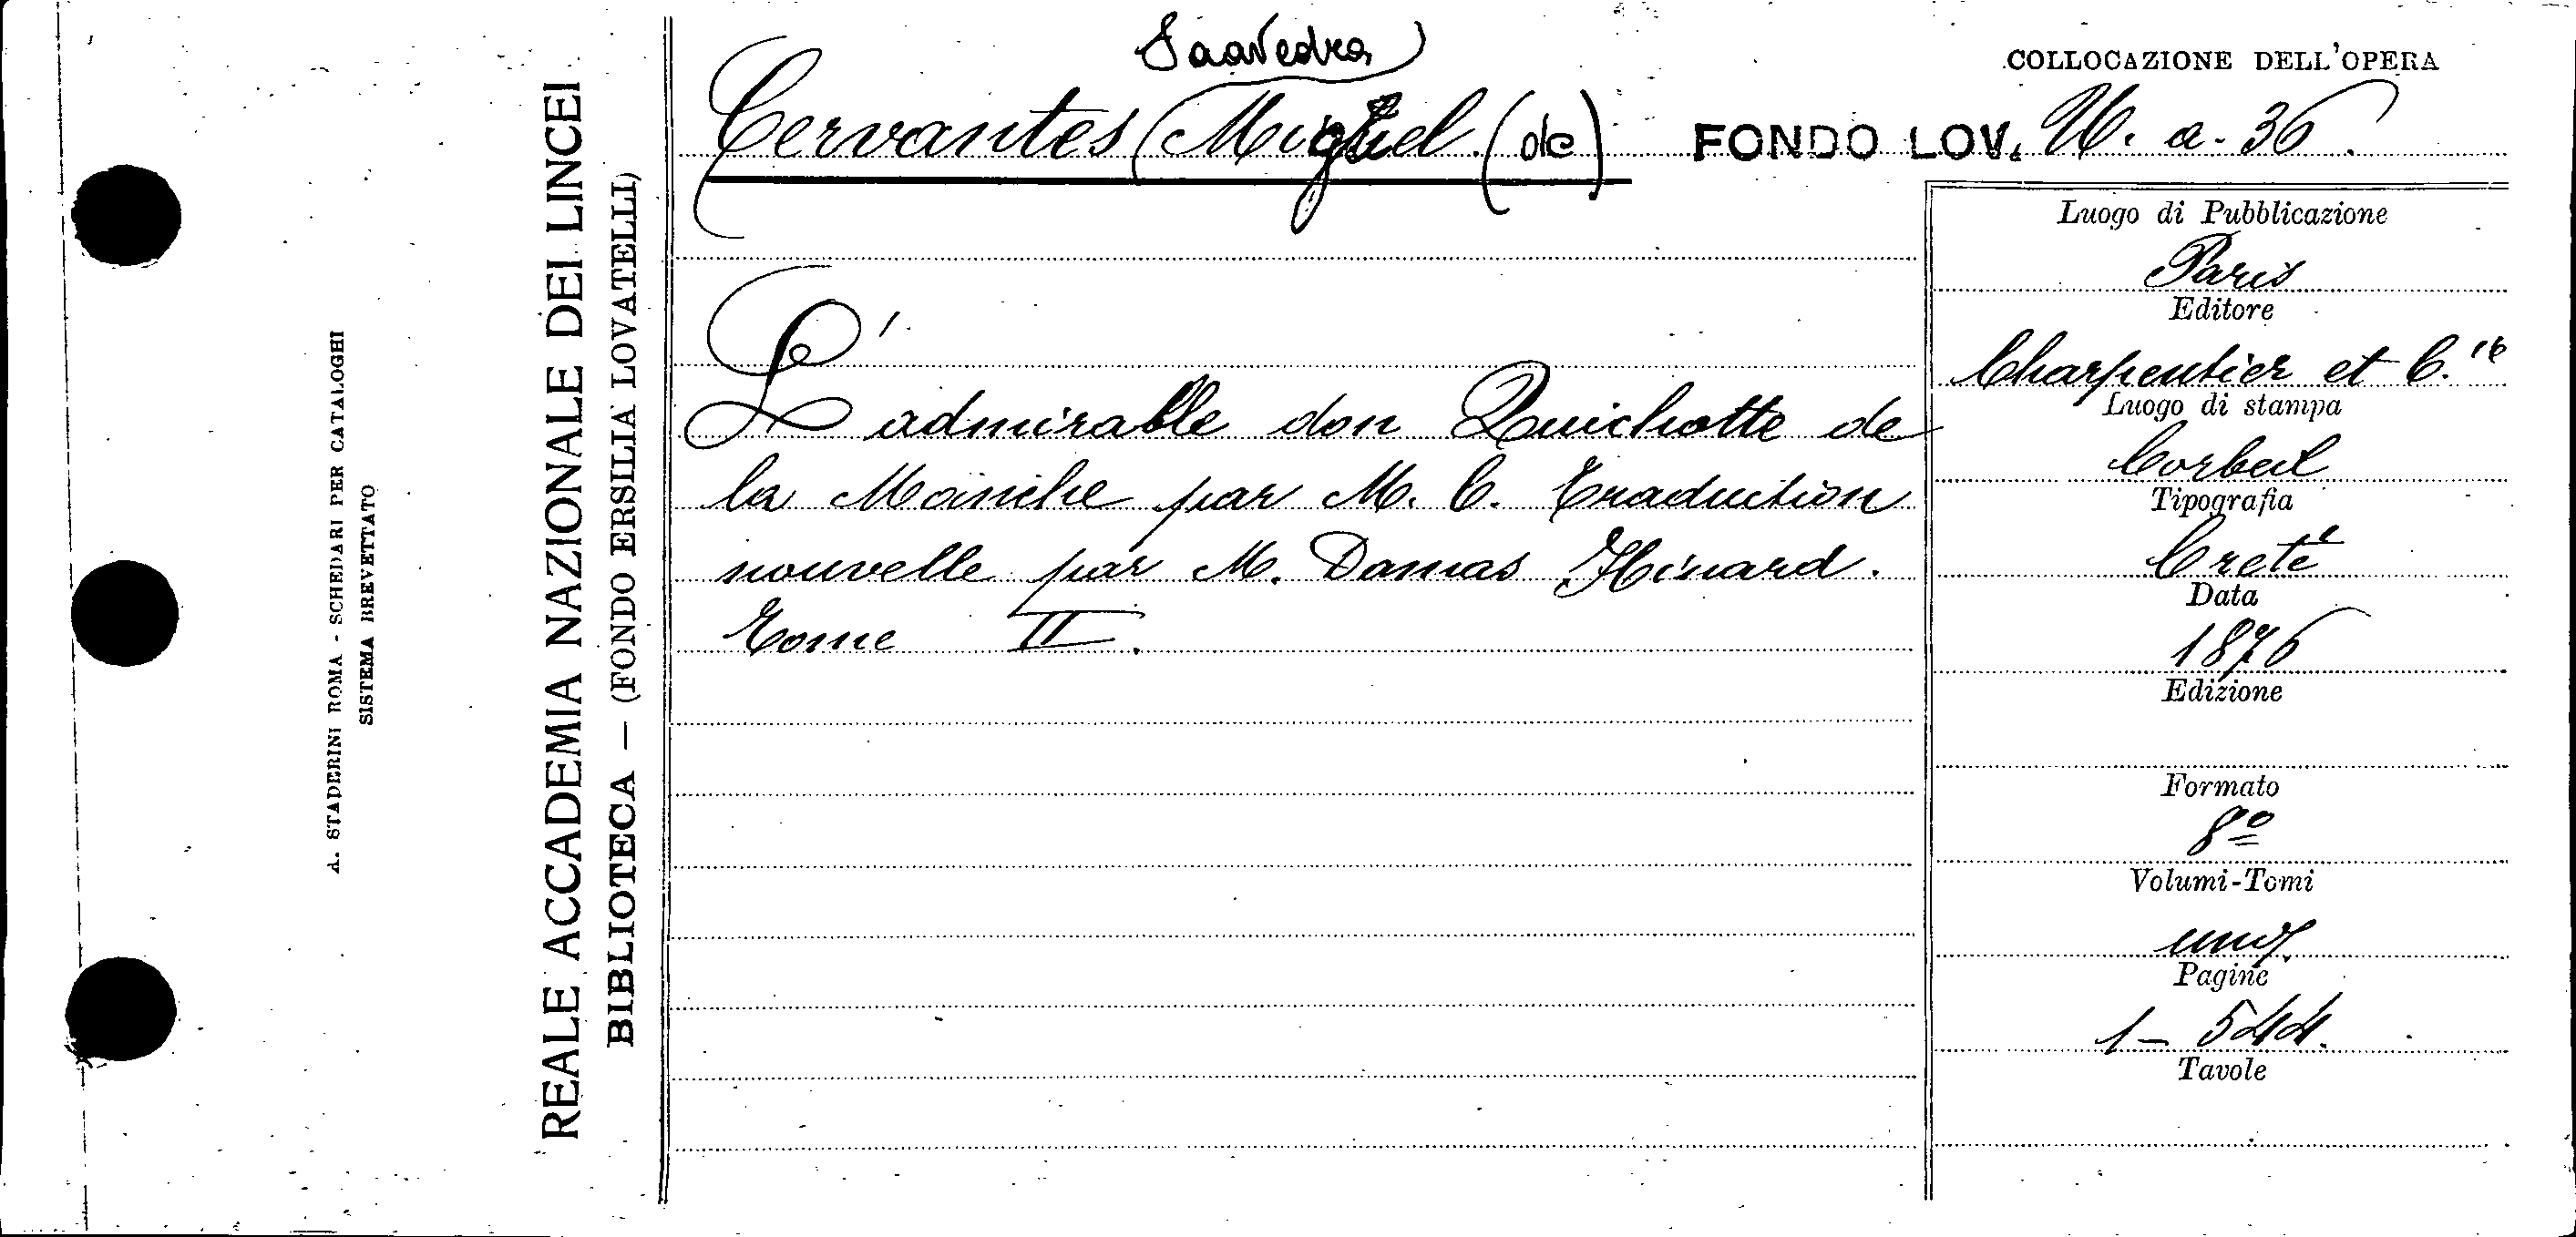 A. STADERINI ROMA - SCHEDARI PER CATALOGHI
SISTEMA BREVETTATO
REALE ACCADEMIA NAZIONALE DEI LINCEI
BIBLIOTECA — (FONDO ERSILIA LOVATELLI)
Saavedra
Cervantes (Miguel (de)
COLLOCAZIONE DELL'OPERA
FONDO LOV. U. a. 36.
L'admirable don Quichotte de
la Manche par M. C. Traduction
nouvelle par M. Damas Hinard.
Tome II.
Luogo di Pubblicazione
Paris
Editore
Charpentier et C.ie
Luogo di stampa
Corbeil
Tipografia
Creté
Data
1876
Edizione
Formato
8º
Volumi-Tomi
uno
Pagine
1 - 544.
Tavole